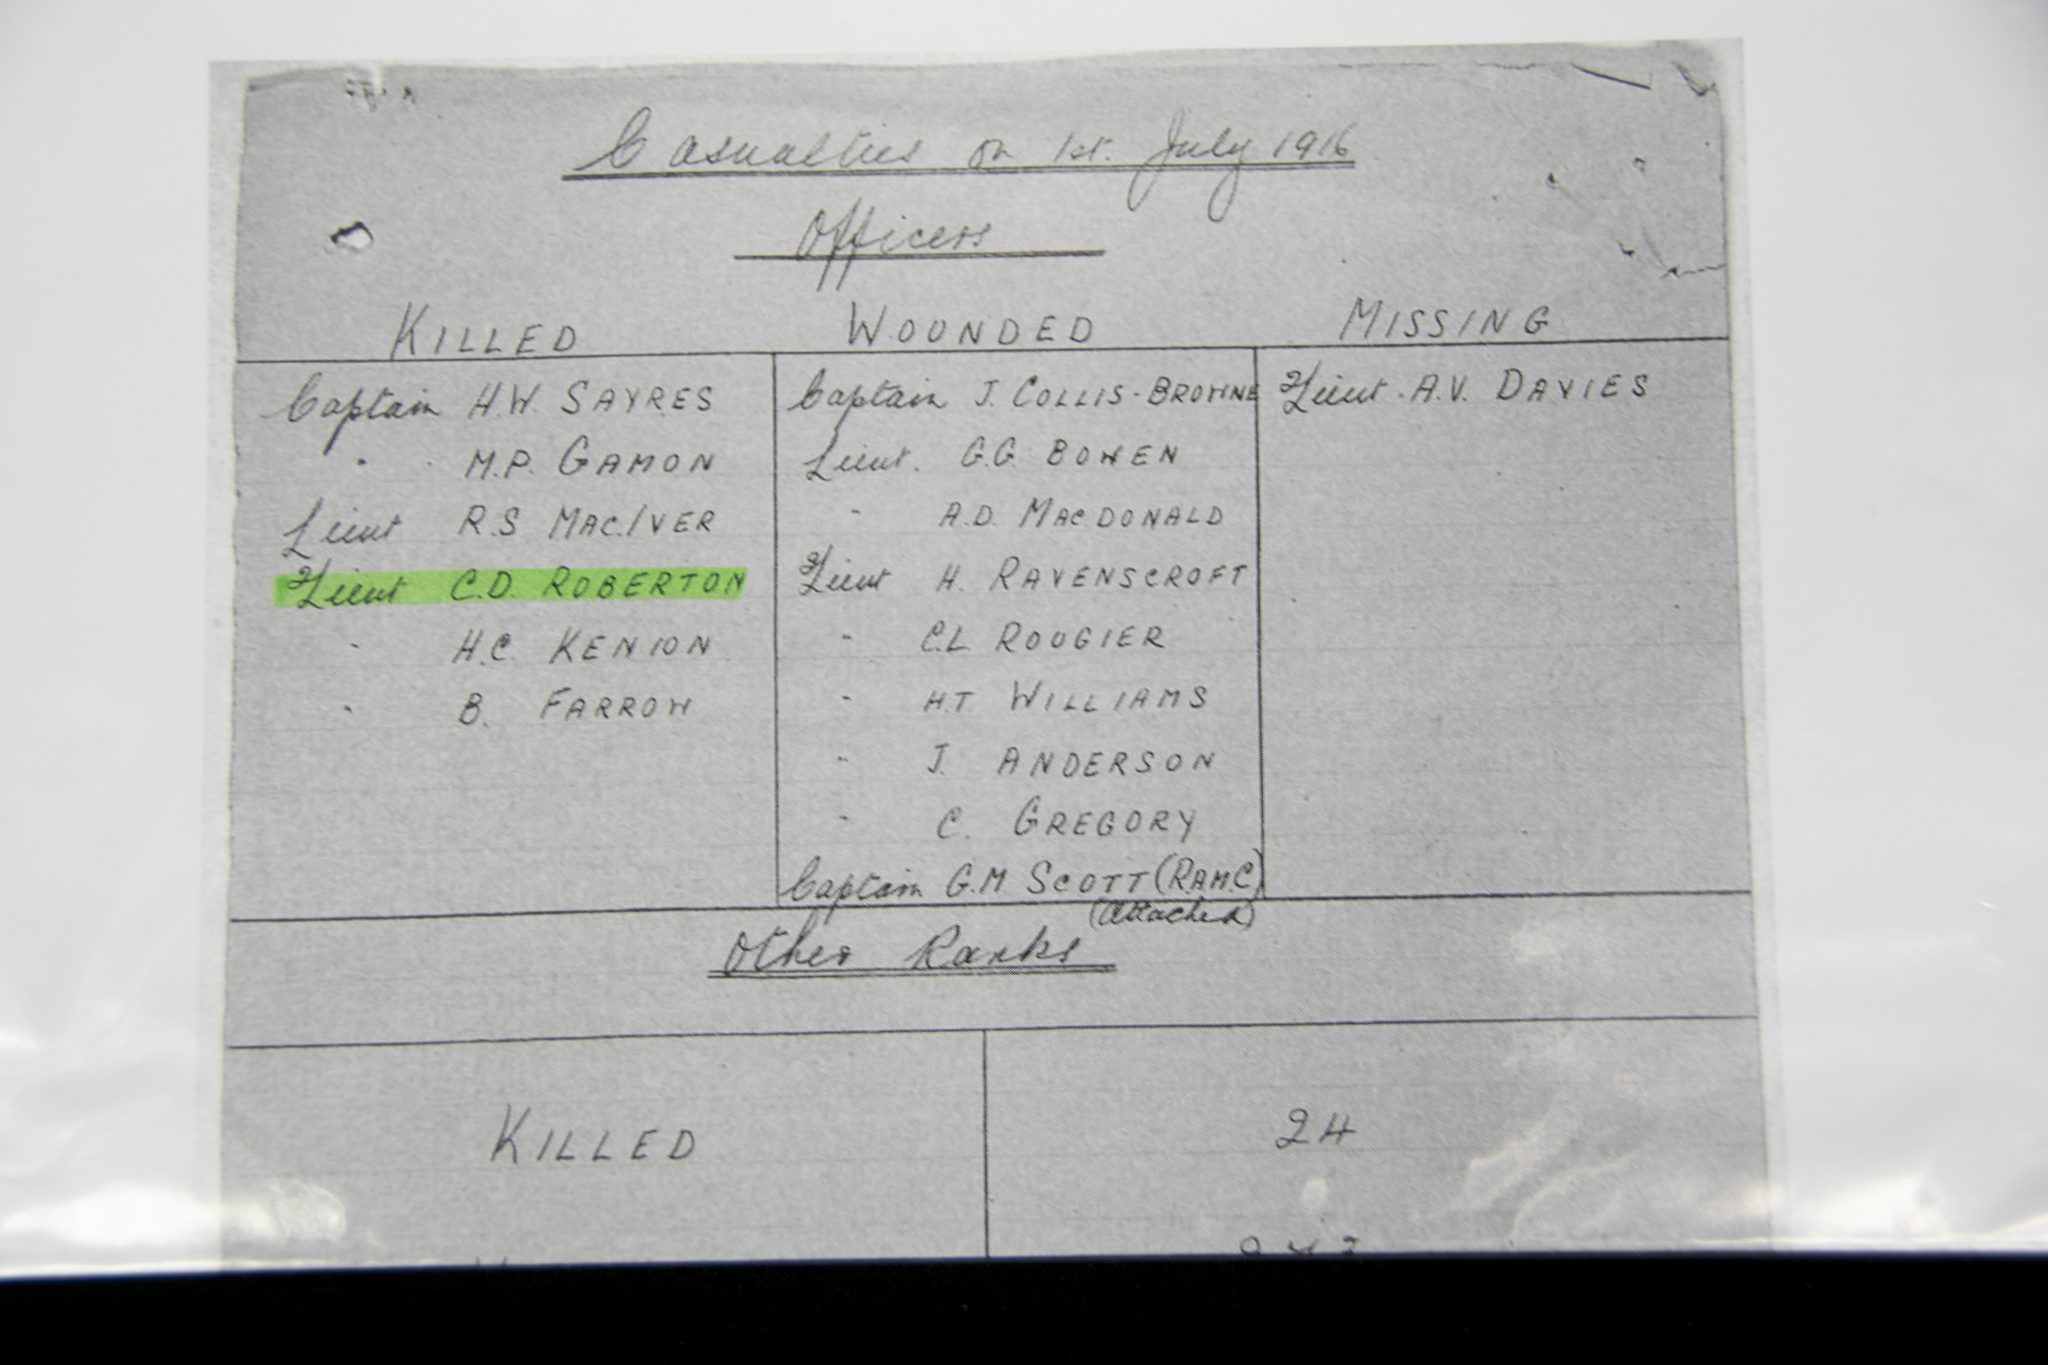 Casualties on 1st. July 1916
Officers
KILLED WOUNDED MISSING
Captain H.W. SAYRES
" M.P. GAMON
Lieut R.S MAC.IVER
2/Lieut C.D. ROBERTON
" H.C. KENION
" B. FARROW
Captain J. COLLIS-BROWNE
Lieut. G.G BOWEN
" A.D. MACDONALD
2/Lieut H. RAVENSCROFT
" C.L. ROUGIER
" H.T WILLIAMS
" J. ANDERSON
" C. GREGORY
Captain G.M SCOTT (R.A.M.C)
(Attached)
2/Lieut. A.V. DAVIES
Other Ranks
KILLED 24